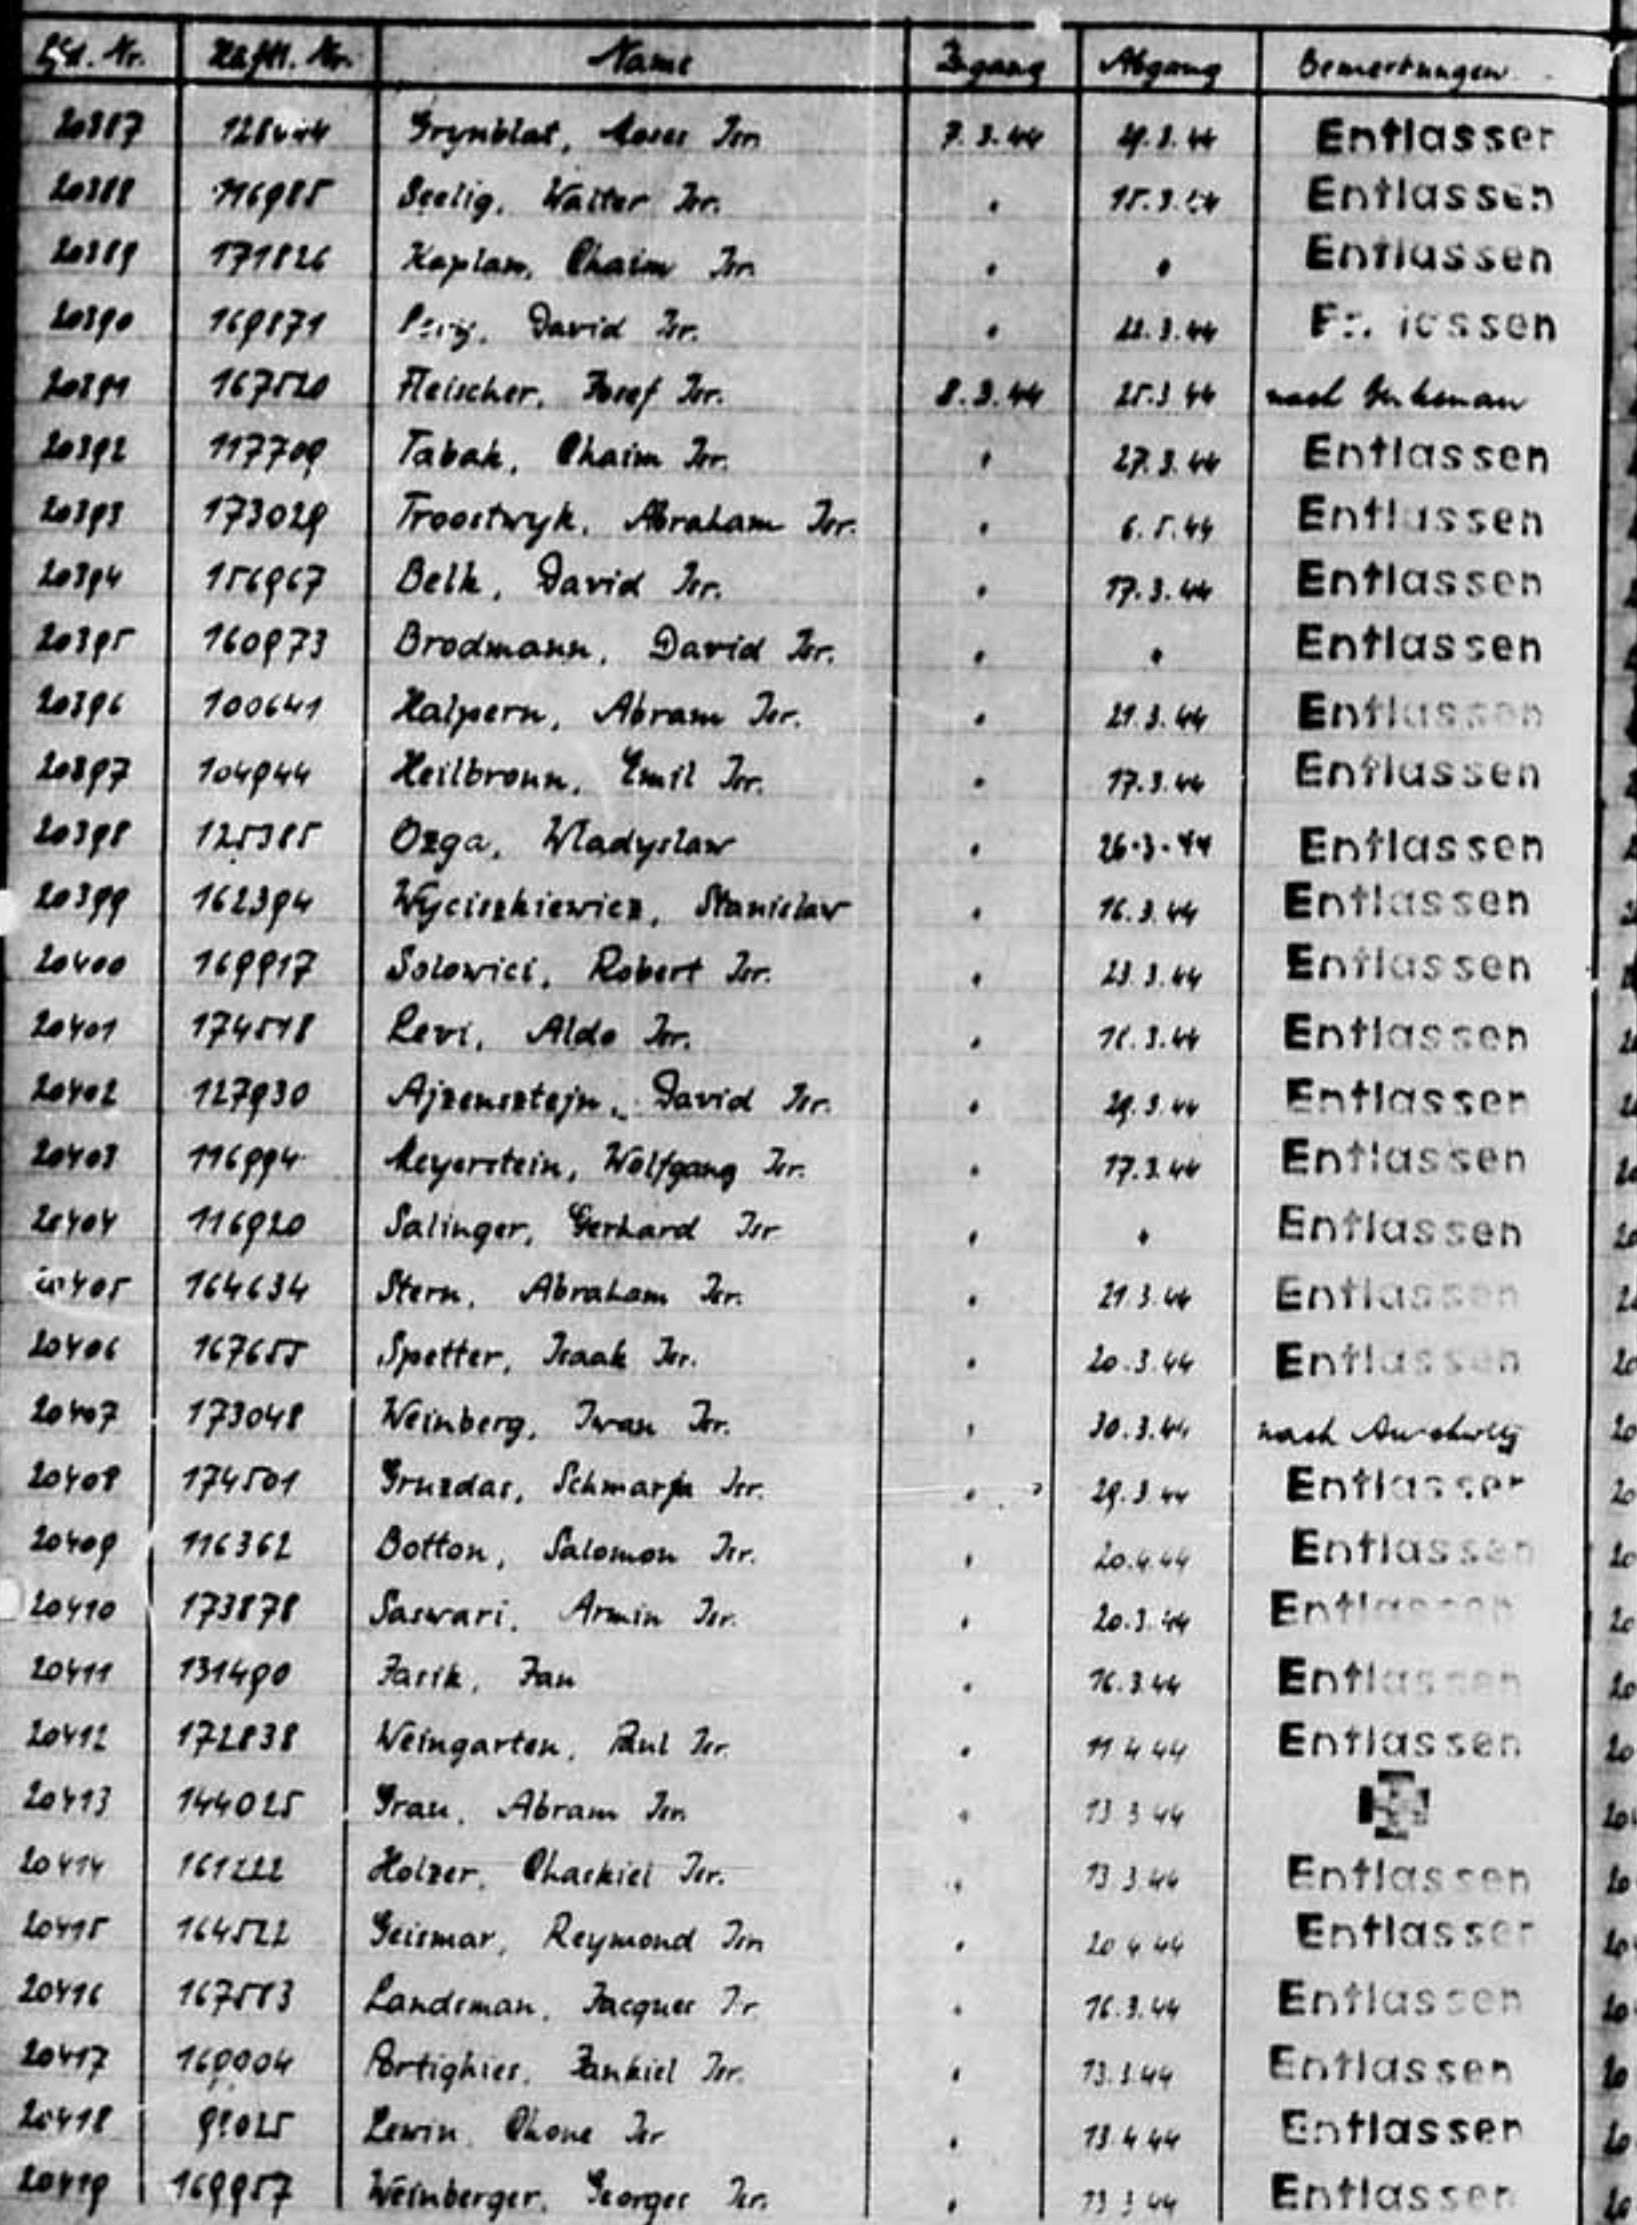 Lfd. Nr. Häftl. Nr. Name Zugang Abgang Bemerkungen
20387 128444 Grynblat, Moses Isr. 7.3.44 29.3.44 Entlassen
20388 116985 Seelig, Walter Isr. " 15.3.44 Entlassen
20389 171826 Kaplan, Chaim Isr. " " Entlassen
20390 169871 David Isr. " 22.3.44 Entlassen
20391 167520 Fleischer, Josef Isr. 8.3.44 25.3.44 nach Birkenau
20392 117709 Tabak, Chaim Isr. " 27.3.44 Entlassen
20393 173029 Troostwyk, Abraham Isr. " 6.5.44 Entlassen
20394 156967 Belk, David Isr. " 17.3.44 Entlassen
20395 160973 Brodmann, David Isr. " " Entlassen
20396 100641 Halpern, Abram Isr. " 21.3.44 Entlassen
20397 104944 Heilbronn, Emil Isr. " 17.3.44 Entlassen
20398 125385 Ozga, Wladyslaw " 26.3.44 Entlassen
20399 162394 Wyciszkiewicz, Stanislaw " 16.3.44 Entlassen
20400 169917 Solowici, Robert Isr. " 23.3.44 Entlassen
20401 174518 Levi, Aldo Isr. " 16.3.44 Entlassen
20402 127930 Ajzensztejn, David Isr. " 29.3.44 Entlassen
20403 116994 Meyerstein, Wolfgang Isr. " 17.3.44 Entlassen
20404 116920 Salinger, Gerhard Isr " " Entlassen
20405 164634 Stern, Abraham Isr. " 21.3.44 Entlassen
20406 167655 Spetter, Isaak Isr. " 20.3.44 Entlassen
20407 173048 Weinberg, Iwan Isr. " 30.3.44 nach Auschwitz
20408 174501 Gruzdas, Schmarja Isr. " 29.3.44 Entlassen
20409 116362 Botton, Salomon Isr. " 20.4.44 Entlassen
20410 173878 Saswari, Armin Isr. " 20.3.44 Entlassen
20411 131490 Jasik, Jan " 16.3.44 Entlassen
20412 172838 Weingarten, Paul Isr. " 11 4 44 Entlassen
20413 144025 Grau, Abram Isr. " 13 3 44
20414 161222 Holzer, Chaskiel Isr. " 13 3 44 Entlassen
20415 164522 Geismar, Reymond Isr. " 20 4 44 Entlassen
20416 167513 Landsman, Jacques Isr " 16.3.44 Entlassen
20417 169004 Jankiel Isr. " 13.3.44 Entlassen
20418 Lewin, Chone Isr " 13 4 44 Entlassen
20419 169957 Weinberger, Georges Isr. " 13 3 44 Entlassen